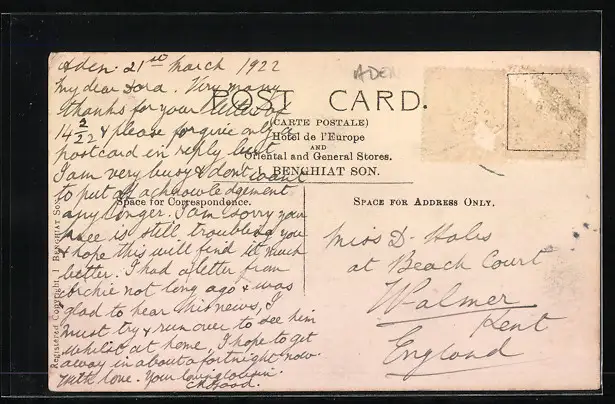 Aden. 21st March 1922
My dear Dora. Very many
thanks for your letter of
14 2/22 & please forgive only a
postcard in reply but
I am very busy & dont want
to put off acknowledgement
any longer. I am sorry your
knee is still troubling you
& hope this will find it much
better. I had a letter from
Archie not long ago & was
glad to hear his news, I
must try & run over to see him
whilst at home, I hope to get
away in about a fortnight now.
With love. Your loving cousin.
ADEN
POST CARD.
(CARTE POSTALE)
Hotel de l'Europe
AND
Oriental and General Stores.
J. BENGHIAT SON.
Space for Correspondence.
SPACE FOR ADDRESS ONLY.
Miss D. Hales
at Beach Court
Walmer
Kent
England
Registered Copyright J. BENGHIAT SON